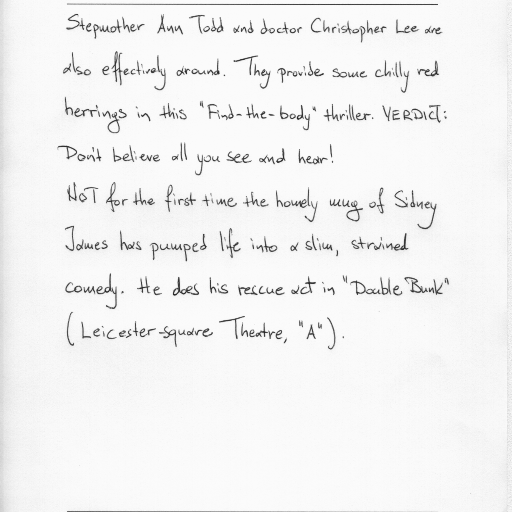 Stepmother Ann Todd and doctor Christopher Lee are
also effectively around. They provide some chilly red
herrings in this "Find-the-body" thriller. VERDICT:
Don't believe all you see and hear!
NOT for the first time the homely mug of Sidney
James has pumped life into a slim, strained
comedy. He does his rescue act in "Double Bunk"
(Leicester-square Theatre, "A").